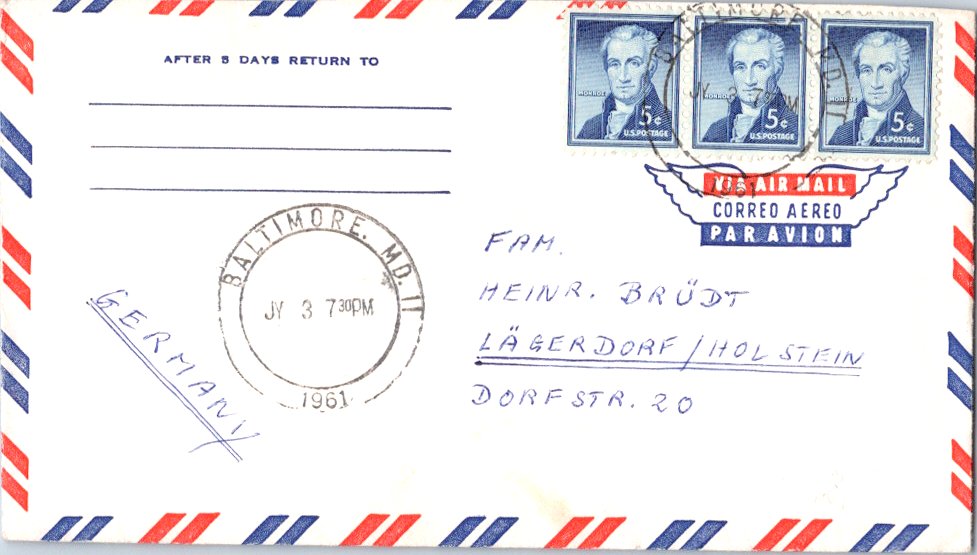 AFTER 5 DAYS RETURN TO
MONROE
5¢
U.S.POSTAGE
MONROE
5¢
U.S.POSTAGE
MONROE
5¢
U.S.POSTAGE
BALTIMORE, MD. 11
JY 3 730PM
1961
VIA AIR MAIL
CORREO AEREO
PAR AVION
BALTIMORE, MD. 11
JY 3 730PM
1961
GERMANY
FAM.
HEINR. BRÜDT
LÄGERDORF/HOLSTEIN
DORFSTR. 20